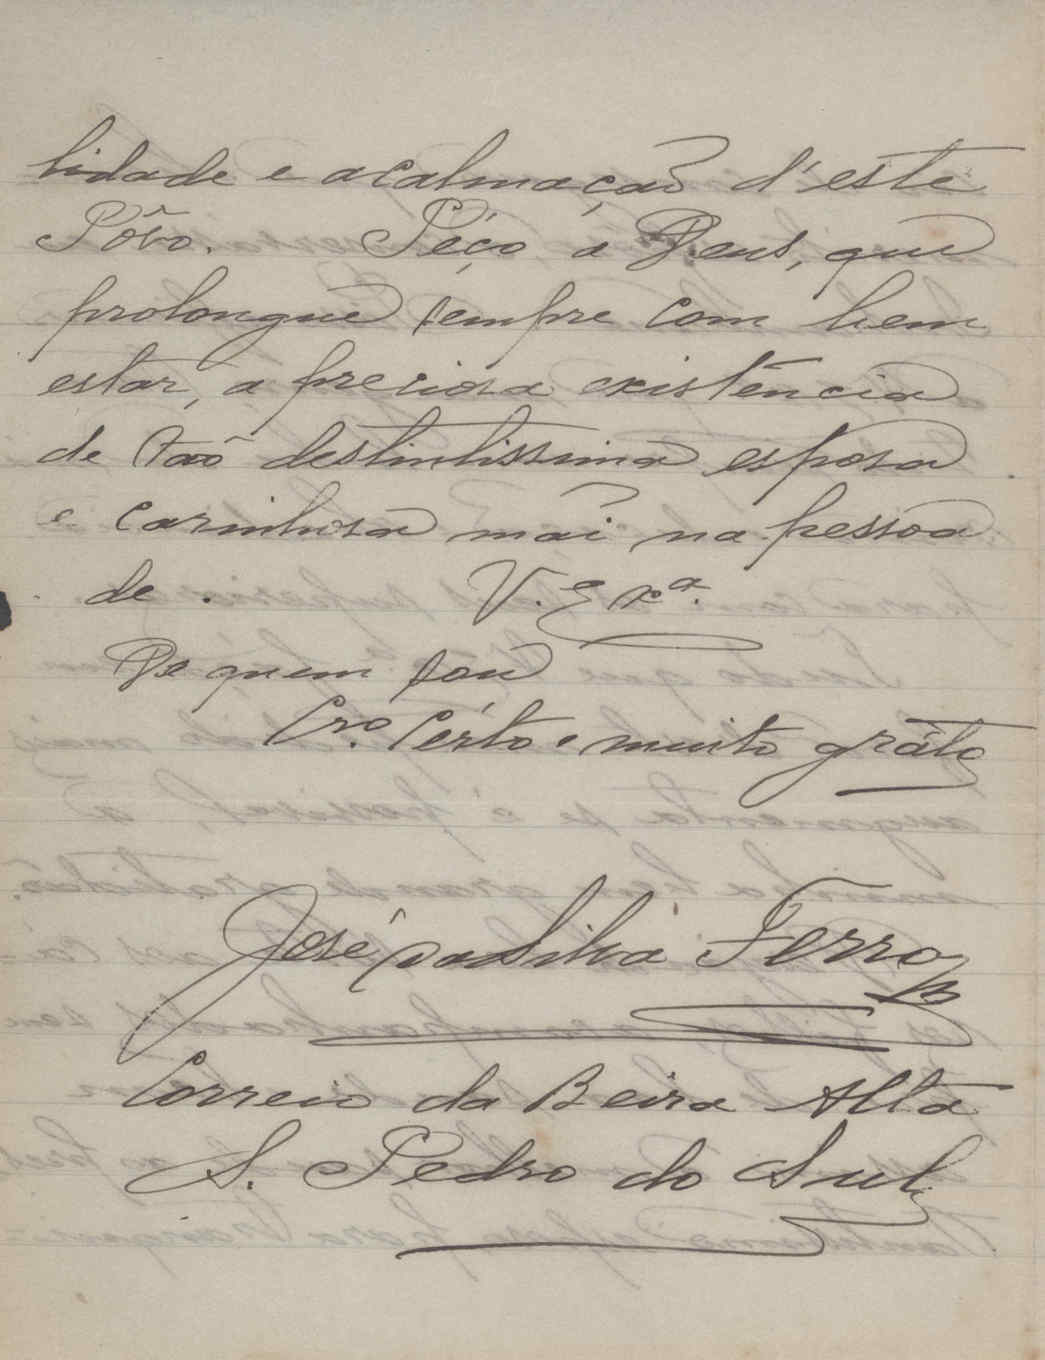 lidade e acalmação d'este
Pôvo. Péço a Deus, que
prolongue sempre com bem
estar, a preciosa existência
de tão destintissima esposa
e carinhosa mãi na pessoa
de. V. Exª.
De quem sou
Cro. Cérto e muito gráto
José da Silva Ferro
Correio da Beira Alta
S. Pedro do Sul